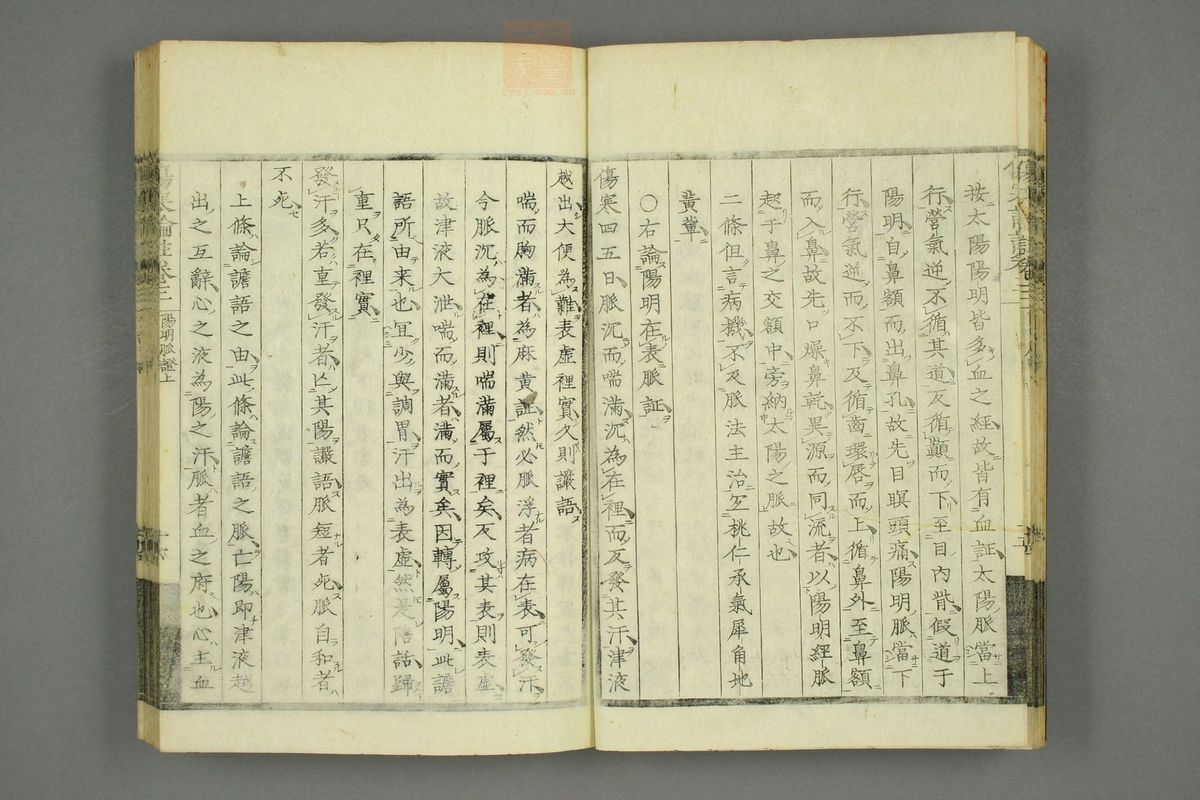 按太陽陽明皆多血之經故皆有血証太陽脈當上
行營氣逆不循其道反循巔而下至目內眥假道于
陽明自鼻額而出鼻孔故先目瞑頭痛陽明脈當下
行營氣逆而不下反循齒環唇而上循鼻外至鼻額
而入鼻故先口燥鼻乾異源而同流者以陽明經脈
起于鼻之交額中旁納太陽之脈故也
二條但言病機不及脈法主治宜桃仁承氣犀角地
黃輩
○右論陽明在表脈証
傷寒四五日脈沉而喘滿沉為在裡而反發其汗津液
越出大便為難表虛裡實久則讝語
喘而胸滿者為麻黃証然必脈浮者病在表可發汗
今脈沉為在裡則喘滿屬于裡矣反攻其表則表虛
故津液大泄喘而滿者滿而實矣因轉屬陽明此譫
語所由来也宜少與調胃汗出為表虛然是譫語歸
重只在裡實
發汗多若重發汗者亾其陽讝語脈短者死脈自和者
不死
上條論譫語之由此條論譫語之脈亡陽即津液越
出之互辭心之液為陽之汗脈者血之府也心主血
傷寒論註卷三
陽明脈證上
十六